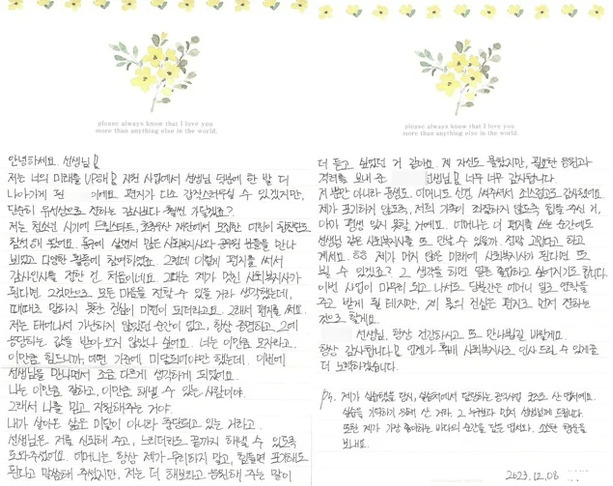 please always know that I love you
more than anything else in the world.
안녕하세요. 선생님
저는 너의 미래를 UP해 지원 사업에서 선생님 덕분에 한 발 더
나아가게 된 이에요. 편지가 다소 갑작스러우실 수 있겠지만,
단순히 유선상으로 전하는 감사보다 훨씬 가닿겠죠?
저는 힘쓰던 시기에 드림스타트, 초록우산 재단에서 모집한
참석해 왔어요. 동구에 살면서 많은 사회복지사와 공무원 분들을 만나
뵈었고 다양한 활동에 참여하였죠. 그런데 이렇게 편지를 써서
감사인사를 전한 건 처음이네요. 그때는 제가 멋진 사회복지사가
된다면, 그것만으로 모든 마음을 전할 수 있을 거라 생각했는데,
때때로 말하지 못한 진심이 미련이 되더라고요. 그래서 편지를 써요.
저는 태어나서 가난하지 않았던 순간이 없고, 항상 증명하고, 그에
응당하는 값을 받아오지 않았나 싶어요. 너는 이만큼 모자라고,
이만큼 힘드니까, 어떤 기준에 미달되어야만 했는데, 이번에
선생님을 만나면서 조금 다르게 생각하게 되었어요.
나는 이만큼 잘하고, 이만큼 해낼 수 있는 사람이야.
그래서 나를 믿고 지원해주는 거야.
내가 살아온 삶은 미달이 아니라 중단되고 있는 거라고.
선생님은 저를 신뢰해 주고, 느리더라도 끝까지 해낼 수 있도록
도와주셨어요. 어머니는 항상 제가 무리하지 말고, 힘들면 포기해도
된다고 말씀해 주셨지만, 저는 더 해보라고 응원해 주는 말이
please always know that I love you
more than anything else in the world.
더 듣고 싶었던 거 같아요. 제 자신도 몰랐지만, 필요한 응원과
격려를 보내 준 선생님 너무 너무 감사합니다.
저 뿐만 아니라 동생도, 어머니도 신경 써주셔서 소스럽고도 감사했어요.
제가 포기하지 않도록, 저희 가족이 좌절하지 않도록 힘을 주신 거,
아마 평생 잊지 못할 거예요. 어머니는 더 편지를 쓰는 순간에도
선생님 같은 사회복지사를 또 만날 수 있을까, 정말 고맙다고 하고
계세요. 저가 머지 않은 미래에 사회복지사가 된다면 또
뵐 수 있겠죠? 그 생각을 하면 일른 졸업하고 싶어지기도 합니다.
이번 사업이 마무리 되고 나서도 당분간은 어머니 일로 연락을
주고 받게 될 테지만, 제 통의 진심은 편지로 먼저 전하는
것으로 할게요.
선생님, 항상 건강하시고 또 만나뵙길 바랄게요.
항상 감사합니다 언젠가 후배 사회복지사로 인사 드릴 수 있게끔
더 노력하겠습니다.
P.S. 제가 실습했을 당시, 실습처에서 담당하는 공간사업 굿즈로 산 엽서예요.
실습을 기억하기 위해 산 거라, 그 누구보다 먼저 선생님께 드립니다.
또한 제가 가장 좋아하는 바다의 순간을 담은 엽서라, 소소한 행운을
보내요.
2023.12.08